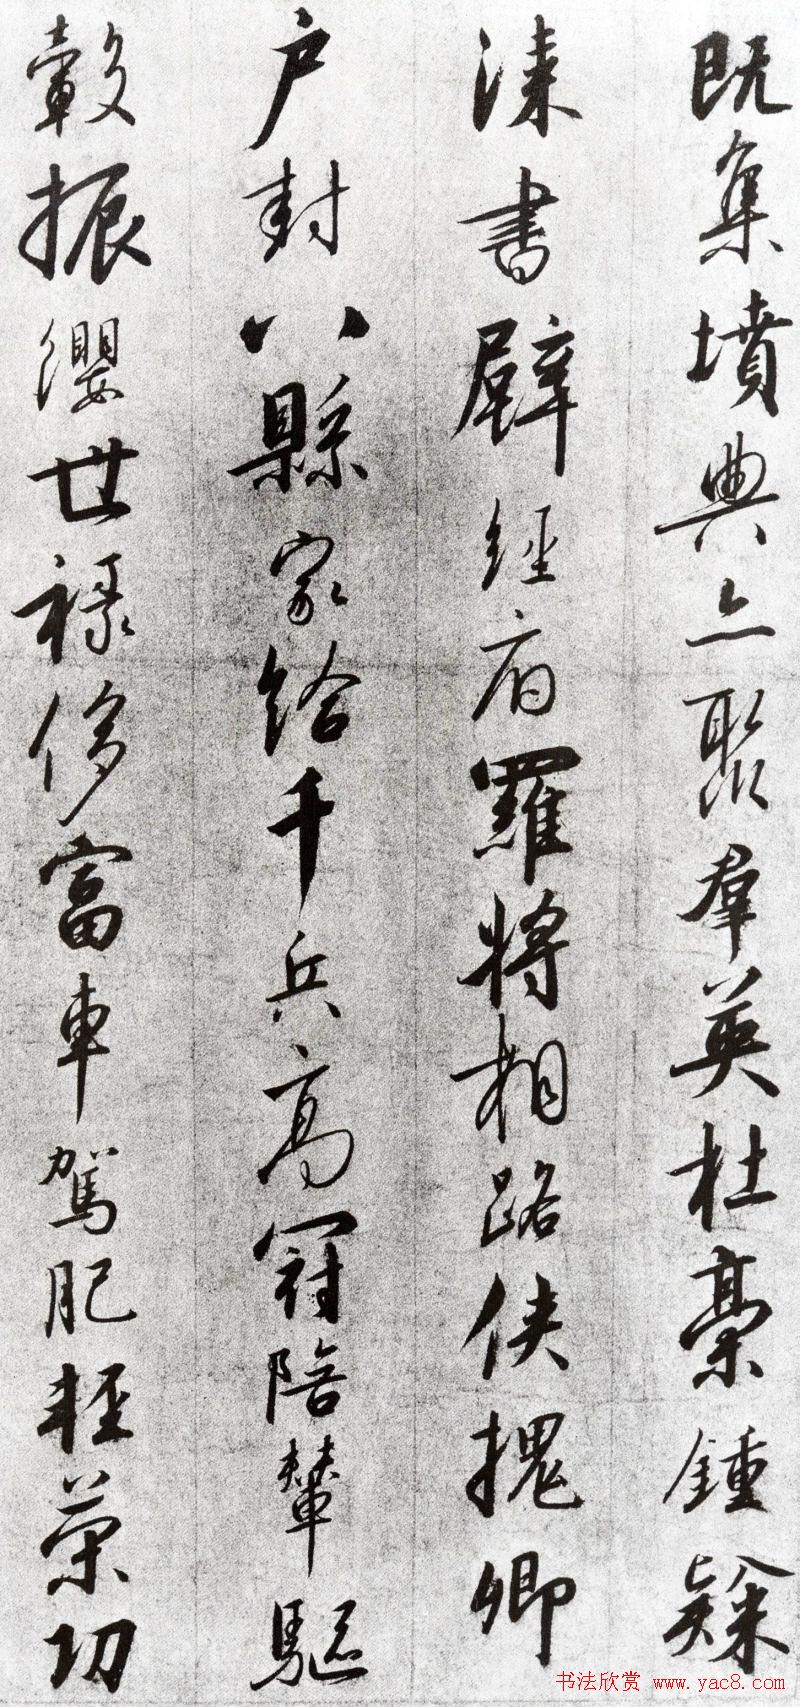 既集墳典亦聚羣英杜稾鍾隸
漆書壁經府羅將相路俠槐卿
户封八縣家給千兵高冠陪輦驅
轂振纓世祿侈富車駕肥輕策功
书法欣赏 www.yac8.com